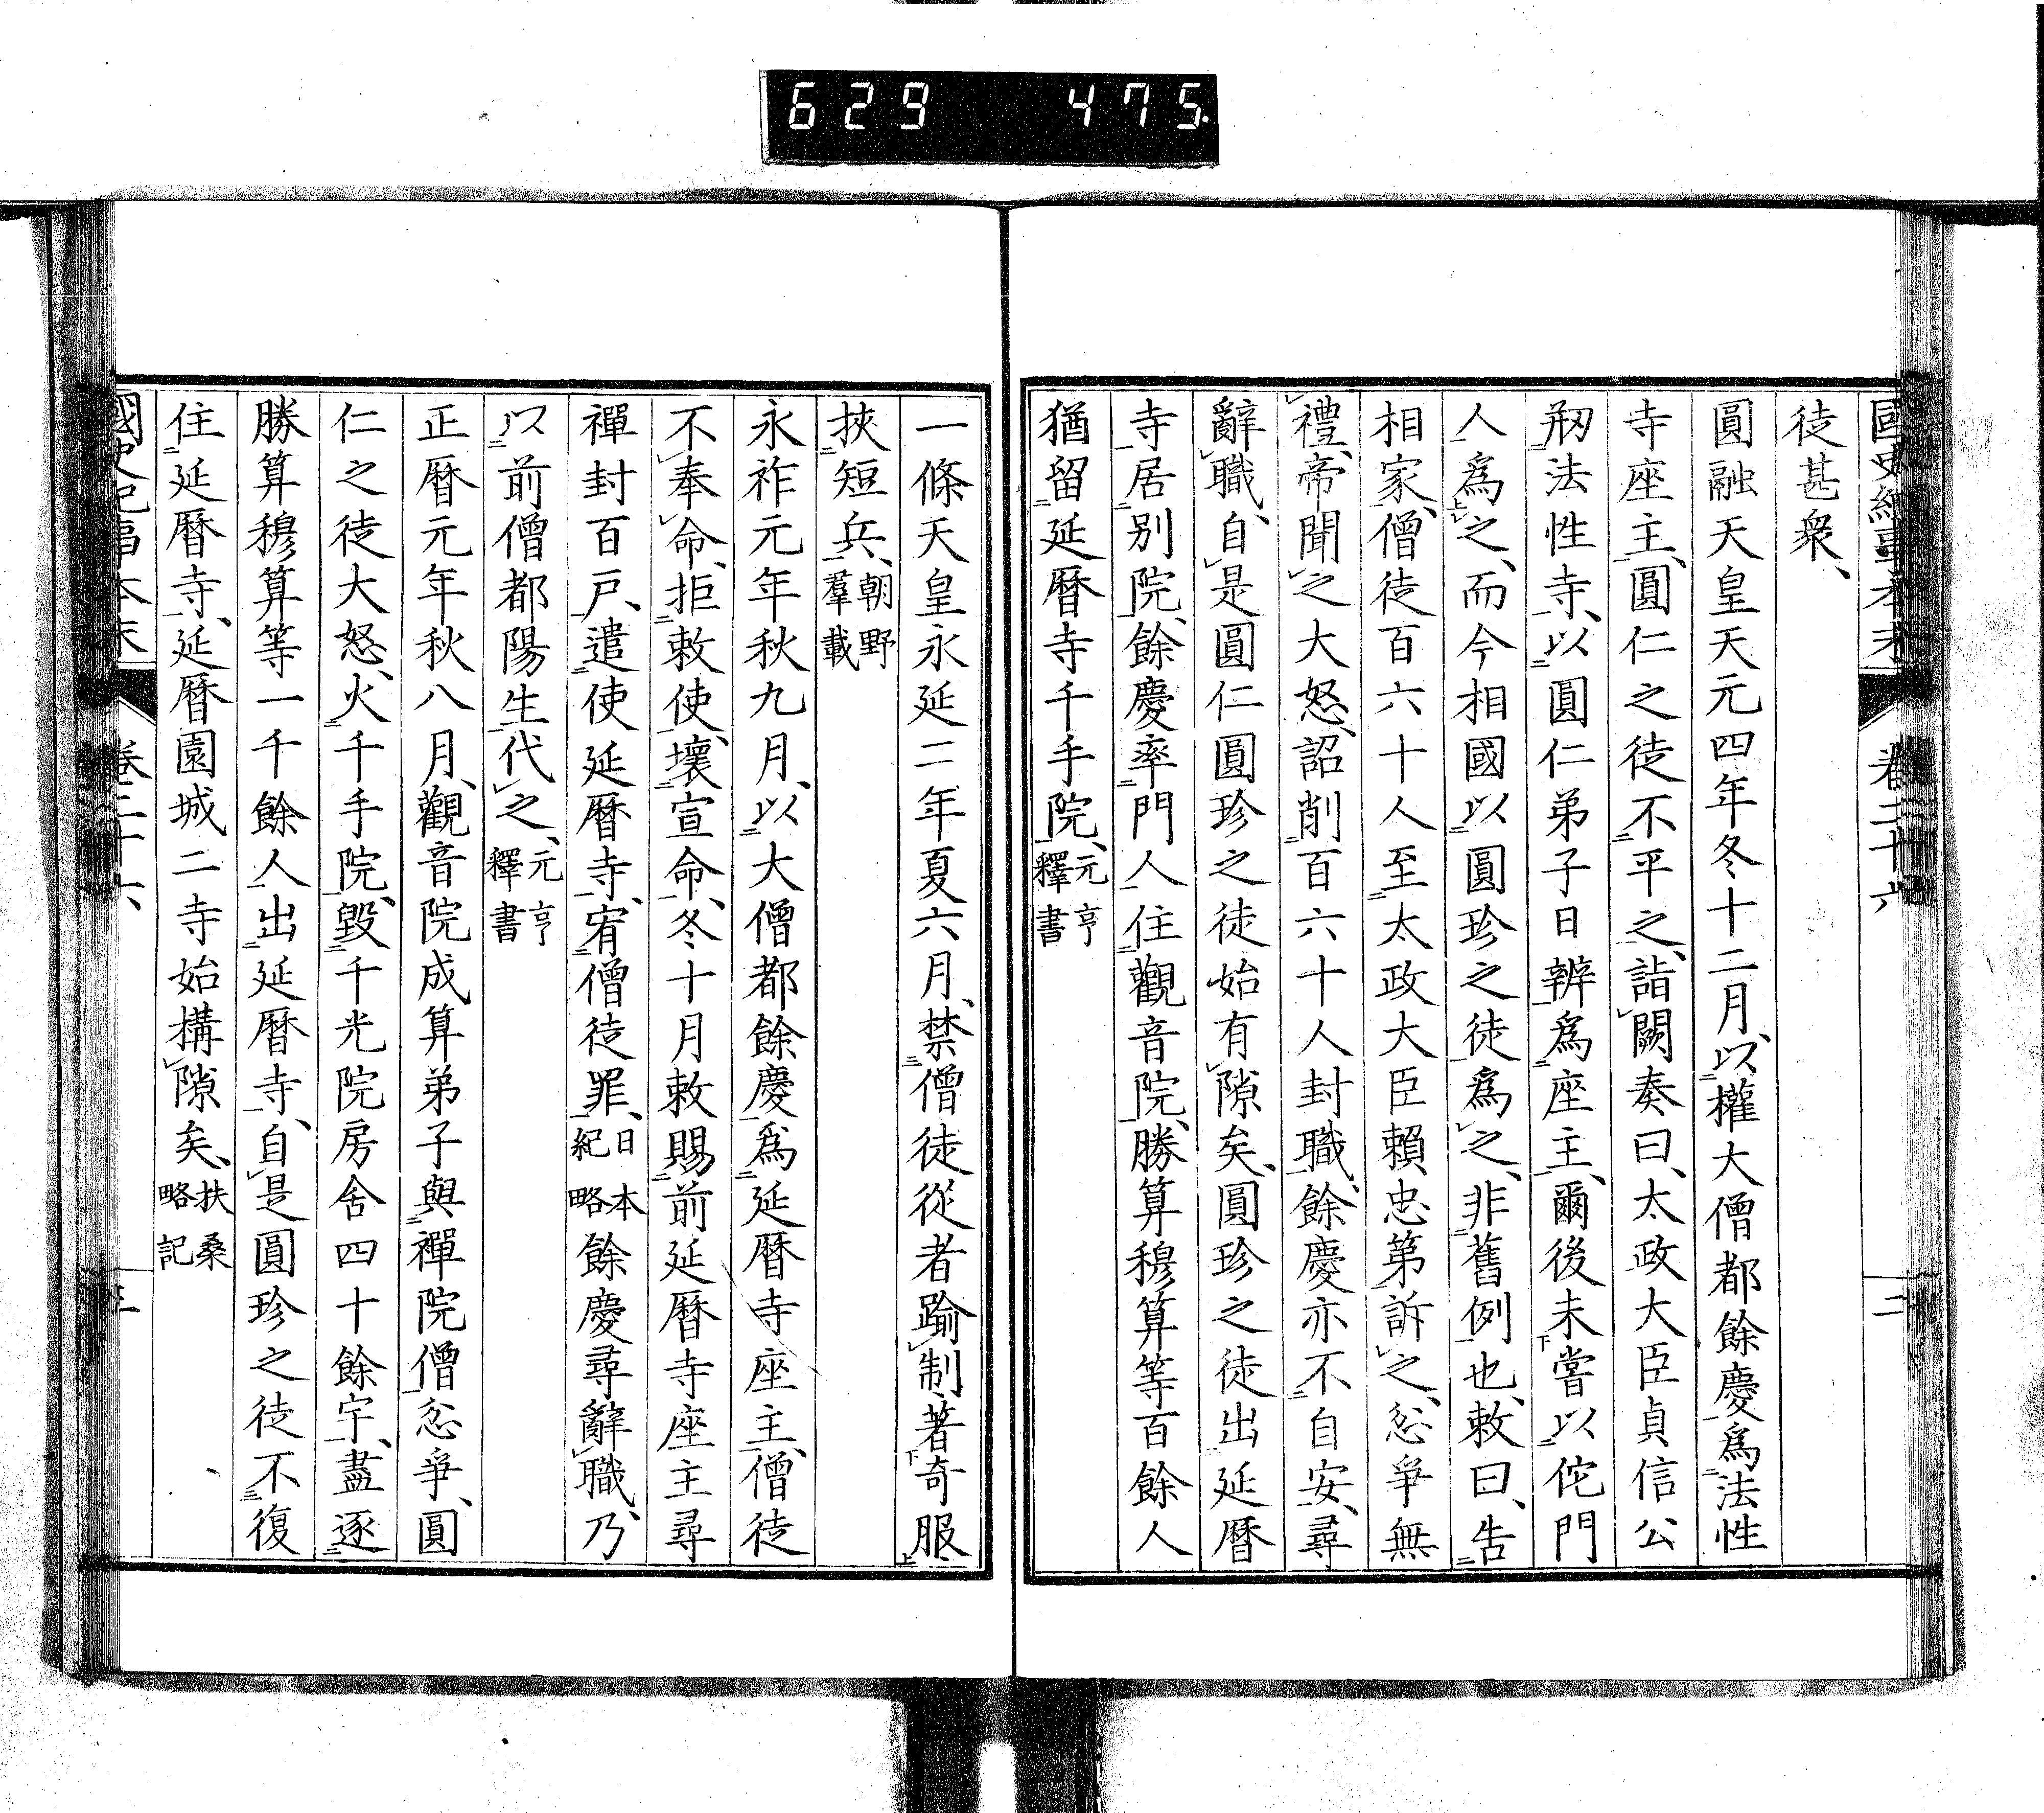 629 475.
國史紀事本末 卷二十六 二
徒甚衆、
圓融天皇天元四年冬十二月、以權大僧都餘慶爲法性
寺座主、圓仁之徒不平之、詣闕奏曰、太政大臣貞信公
剏法性寺、以圓仁弟子日辨爲座主、爾後未嘗以佗門
人爲之、而今相國以圓珍之徒爲之、非舊例也、敕曰、吿
相家、僧徒百六十人至太政大臣賴忠第訴之、忿爭無
禮、帝聞之大怒、詔削百六十人封職、餘慶亦不自安、尋
辭職、自是圓仁圓珍之徒始有隙矣、圓珍之徒出延曆
寺居別院、餘慶率門人住觀音院、勝算穆算等百餘人
猶留延曆寺千手院、元亨釋書
一條天皇永延二年夏六月、禁僧徒從者踰制著奇服
挾短兵、朝野羣載
永祚元年秋九月、以大僧都餘慶爲延曆寺座主、僧徒
不奉命、拒敕使、壞宣命、冬十月敕賜前延曆寺座主尋
禪封百戶、遣使延曆寺、宥僧徒罪、日本紀略餘慶尋辭職、乃
以前僧都陽生代之、元亨釋書
正曆元年秋八月、觀音院成算弟子與禪院僧忿爭、圓
仁之徒大怒、火千手院、毀千光院房舍四十餘宇、盡逐
勝算穆算等一千餘人出延曆寺、自是圓珍之徒不復
住延曆寺、延曆園城二寺始構隙矣、扶桑略記
國史紀事本末 卷二十六 三